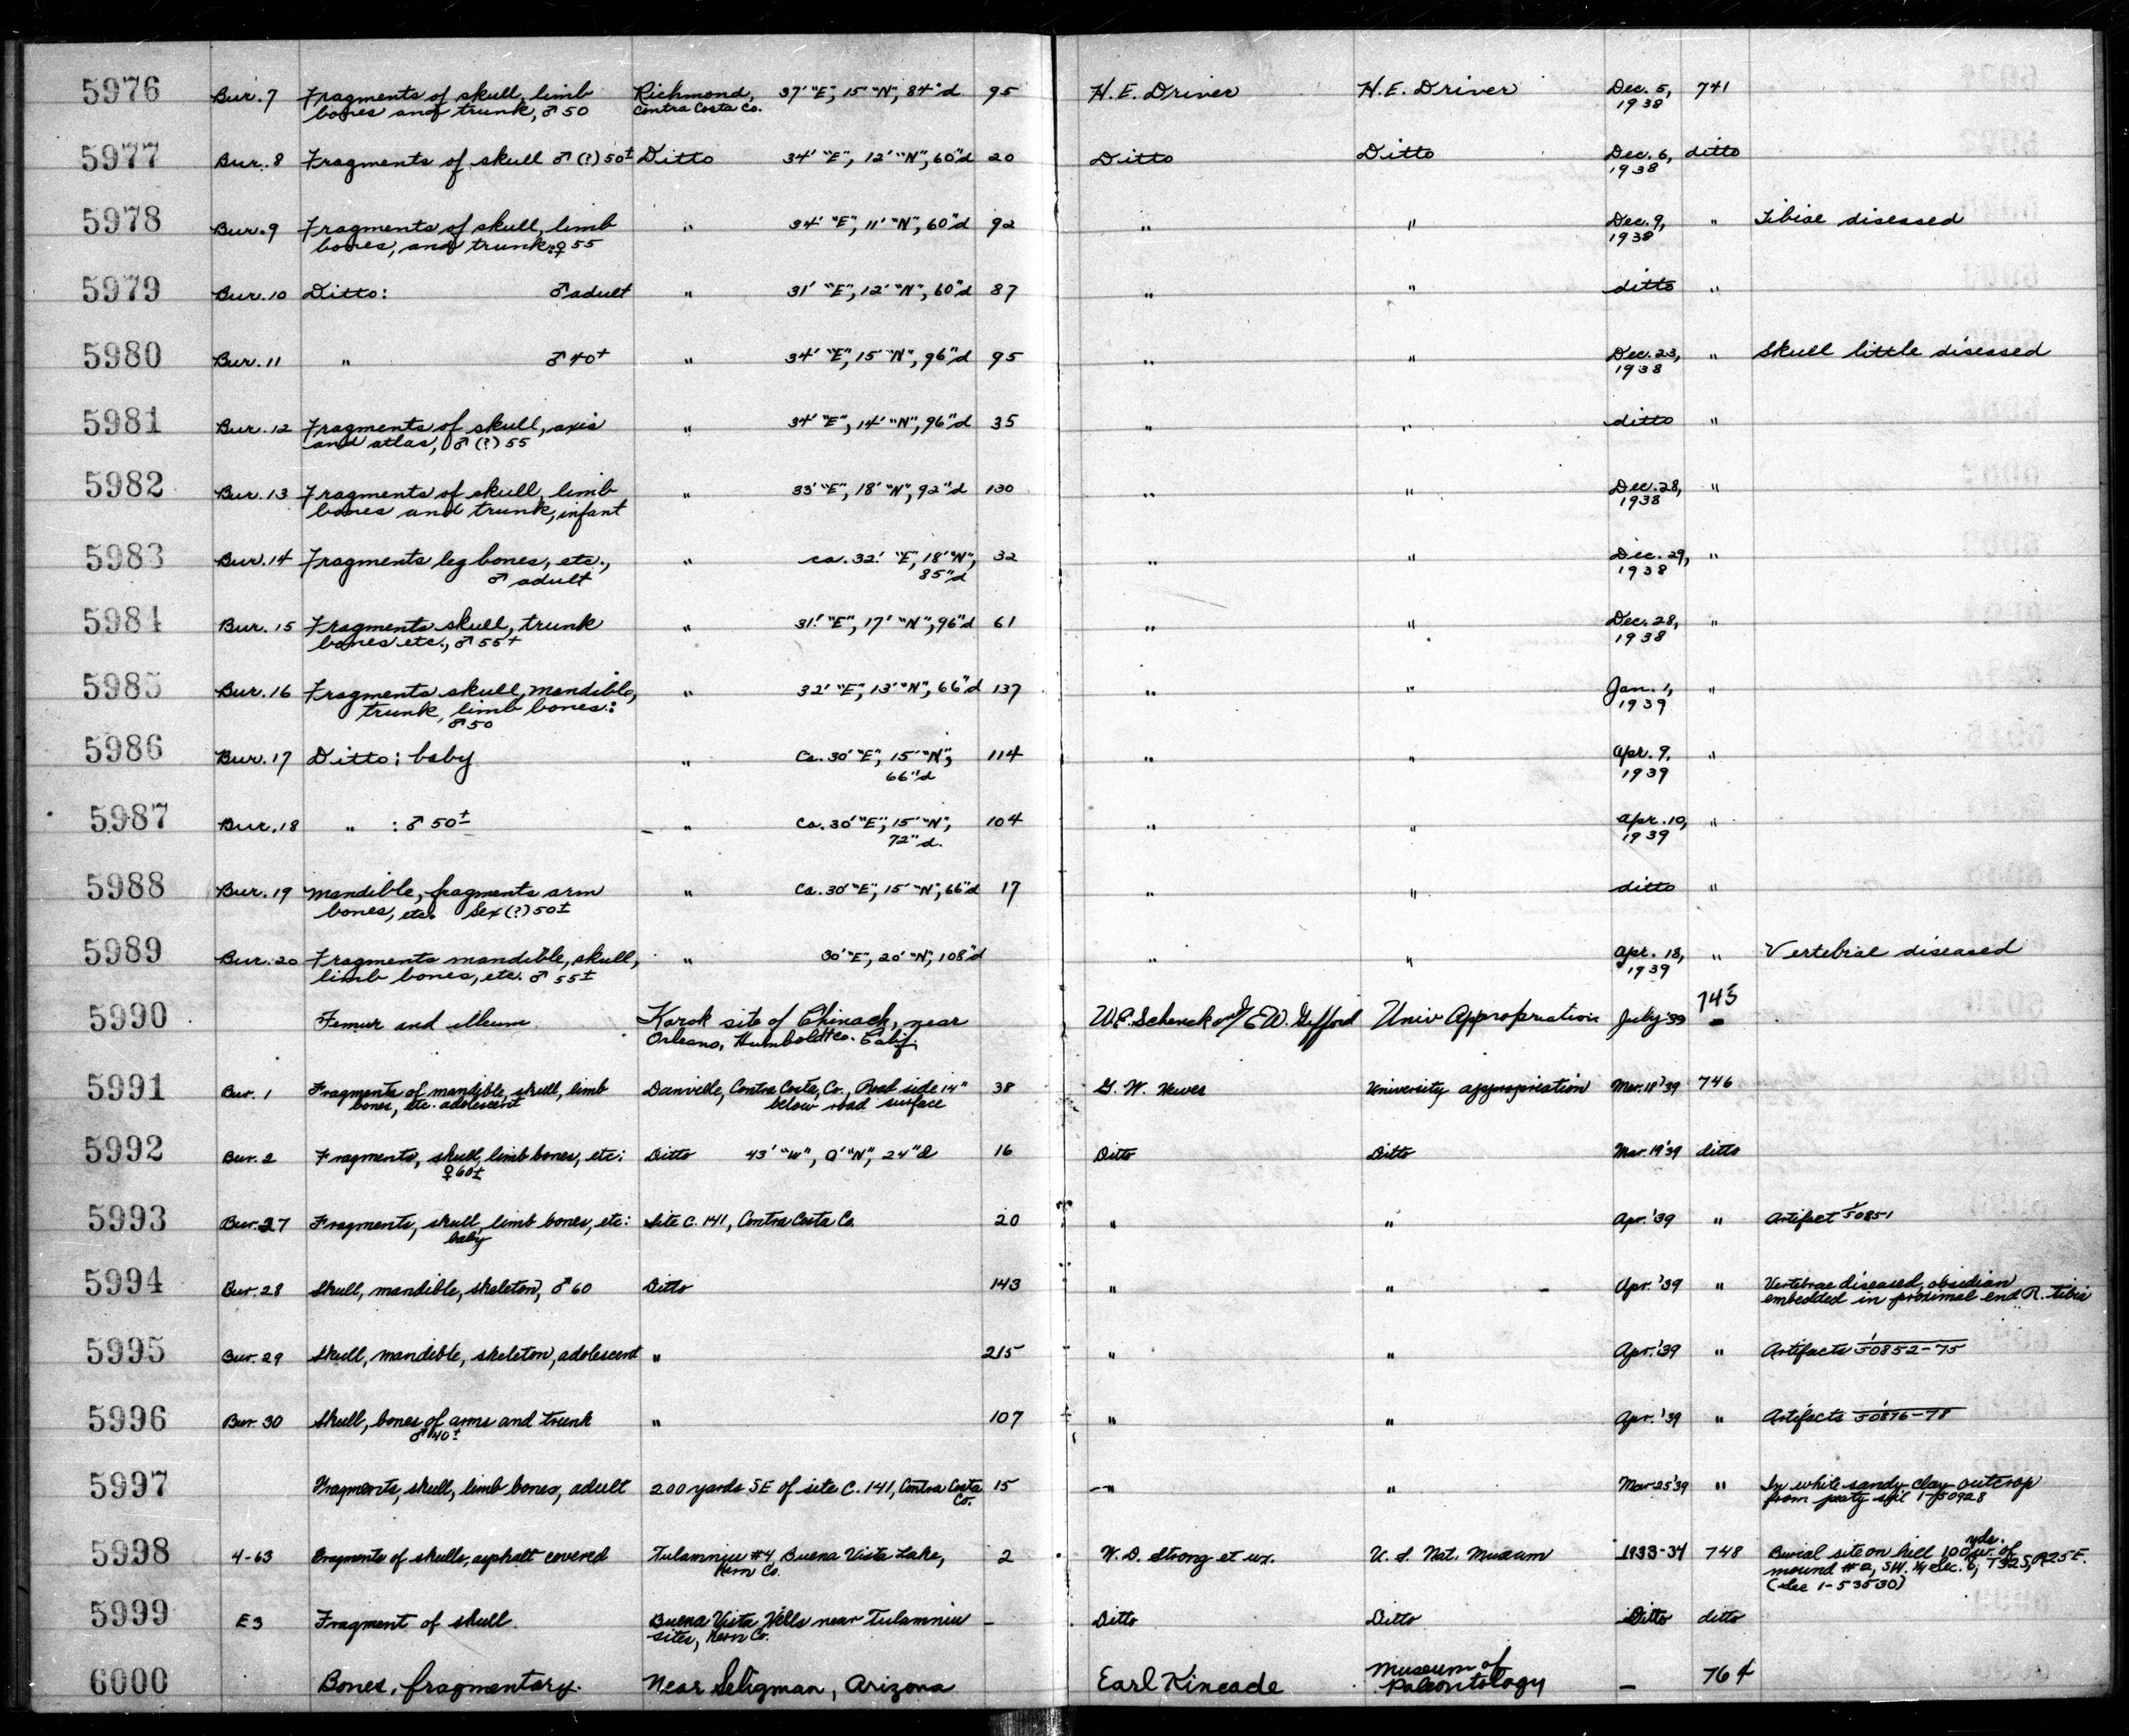 5976 Bur. 7 Fragments of skull, limb Richmond, 37' "E", 15' "N", 84" d 95 H. E. Driver H. E. Driver Dec. 5, 741
bones and trunk, ♂ 50 Contra Costa Co. 1938
5977 Bur. 8 Fragments of skull ♂ (?) 50± Ditto 34' "E", 12' "N", 60" d 20 Ditto Ditto Dec. 6, ditto
1938
5978 Bur. 9 Fragments of skull, limb " 34' "E", 11' "N", 60" d 92 " " Dec. 9, " Tibiae diseased
bones, and trunk: ♀ 55 1938
5979 Bur. 10 Ditto: ♂ adult " 31' "E", 12' "N", 60" d 87 " " ditto "
5980 Bur. 11 " ♂ 40+ " 34' "E", 15' "N", 96" d 95 " " Dec. 23, " Skull little diseased
1938
5981 Bur. 12 Fragments of skull, axis " 34' "E", 14' "N", 96" d 35 " " ditto "
and atlas, ♂ (?) 55
5982 Bur. 13 Fragments of skull, limb " 33' "E", 18' "N", 92" d 130 " " Dec. 28, "
bones and trunk, infant 1938
5983 Bur. 14 Fragments leg bones, etc., " ca. 32' "E", 18' "N", 32 " " Dec. 29, "
♂ adult 85" d 1938
5984 Bur. 15 Fragments skull, trunk " 31' "E", 17' "N", 96" d 61 " " Dec. 28, "
bones etc., ♂ 55+ 1938
5985 Bur. 16 Fragments skull, mandible, " 32' "E", 13' "N", 66" d 137 " " Jan. 1, "
trunk, limb bones: 1939
♂ 50
5986 Bur. 17 Ditto: baby " Ca. 30' "E", 15' "N", 114 " " Apr. 9, "
66" d 1939
5987 Bur. 18 " : ♂ 50± " Ca. 30' "E", 15' "N", 104 " " Apr. 10, "
72" d. 1939
5988 Bur. 19 Mandible, fragments arm " Ca. 30' "E", 15' "N", 66" d 17 " " ditto "
bones, etc. Sex (?) 50±
5989 Bur. 20 Fragments mandible, skull, " 30' "E", 20' "N", 108" d " " Apr. 18, " Vertebrae diseased
limb bones, etc. ♂ 55± 1939
5990 Femur and ileum Karok site of Chinach, near W.E. Schenck and E.W. Gifford Univ Appropriation July '39 745
Orleans, Humboldt Co. Calif. -
5991 Bur. 1 Fragments of mandible, skull, limb Danville, Contra Costa, Co., Road side 14" 38 G. W. Hewes University appropriation Mar. 18 '39 746
bones, etc. adolescent below road surface
5992 Bur. 2 Fragments, skull, limb bones, etc: Ditto 43' "W", 0' "N", 24" d 16 Ditto Ditto Mar. 19 '39 ditto
♀ 60±
5993 Bur. 27 Fragments, skull, limb bones, etc: Site C. 141, Contra Costa Co. 20 " " Apr. '39 " Artifact 1-50851
baby
5994 Bur. 28 Skull, mandible, skeleton, ♂ 60 Ditto 143 " " Apr. '39 " Vertebrae diseased, obsidian
embedded in proximal end R. tibia
5995 Bur. 29 Skull, mandible, skeleton, adolescent " 215 " " Apr. '39 " Artifacts 1-50852-75
5996 Bur. 30 Skull, bones of arms and trunk " 107 " " Apr. '39 " Artifacts 1-50876-78
♂ 40±
5997 Fragments, skull, limb bones, adult 200 yards SE of site C. 141, Contra Costa 15 " " Mar 25 '39 " In white sandy-clay outcrop
Co. from peaty soil 1-50928
5998 4-63 Fragments of skulls, asphalt covered Tulamniu #4, Buena Vista Lake, 2 W. D. Strong et ux. U. S. Nat. Museum 1933-34 748 Burial site on hill 100 yds. W. of
Kern Co. mound #2, SW. 1/4 Sec. 6, T32S, R25E.
(See 1-53530)
5999 E3 Fragment of skull. Buena Vista Hills near Tulamniu - Ditto Ditto Ditto ditto
sites, Kern Co.
6000 Bones, fragmentary. Near Seligman, Arizona Earl Kincade Museum of - 764
Paleontology